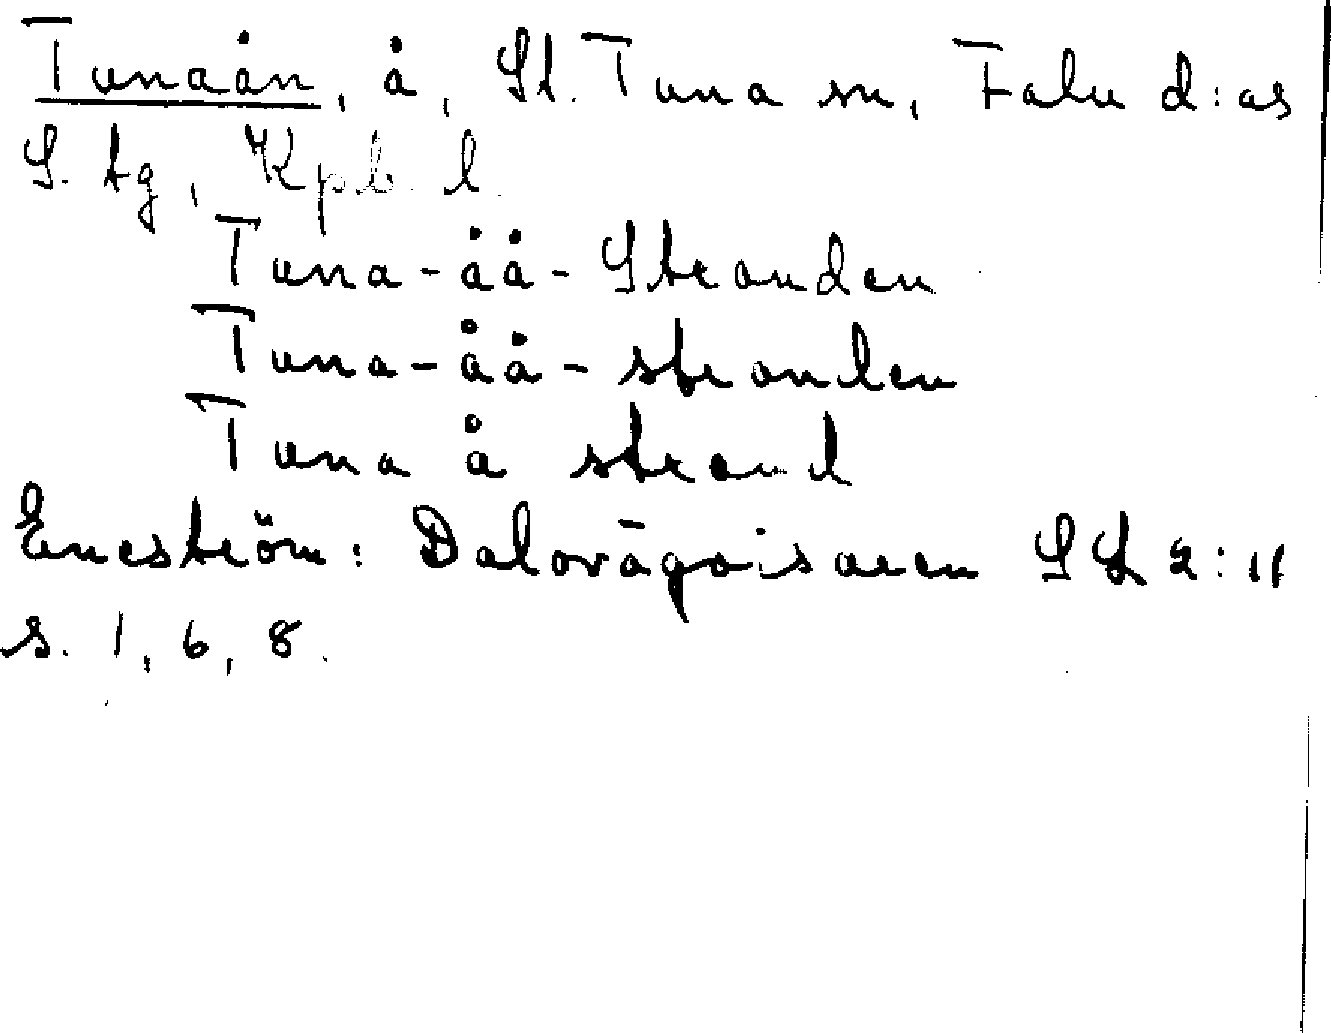 Tunaån, å, St. Tuna sn, Falu d:as
S. tg, Kpb. l.
Tuna-åå-Stranden
Tuna-åå-stranden
Tuna å strand
Eneström: Dalovägvisaren SL 2:11
s. 1, 6, 8.